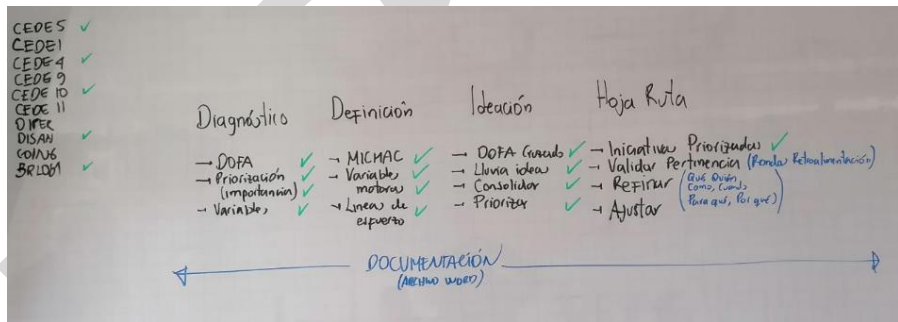 CEDE5 ✓
CEDE1
CEDE4 ✓
CEDE9
CEDE10 ✓
CEDE11
DIPER
DISAN ✓
COING
BRLOG1 ✓
Diagnóstico
→ DOFA ✓
→ Priorización ✓
(importancia) ✓
→ Variables ✓
Definición
→ MICMAC ✓
→ Variables ✓
motoras
→ Linea de ✓
esfuerzo
Ideación
→ DOFA Cruzado ✓
→ Lluvia ideas ✓
→ Consolidar ✓
→ Priorizar ✓
Hoja Ruta
→ Iniciativas Priorizadas ✓
→ Validar Pertinencia (Ronda Retroalimentación)
→ Refinar (Qué, Quién,
Como, Cuando,
Para qué, Por qué)
→ Ajustar
DOCUMENTACIÓN
(ARCHIVO WORD)